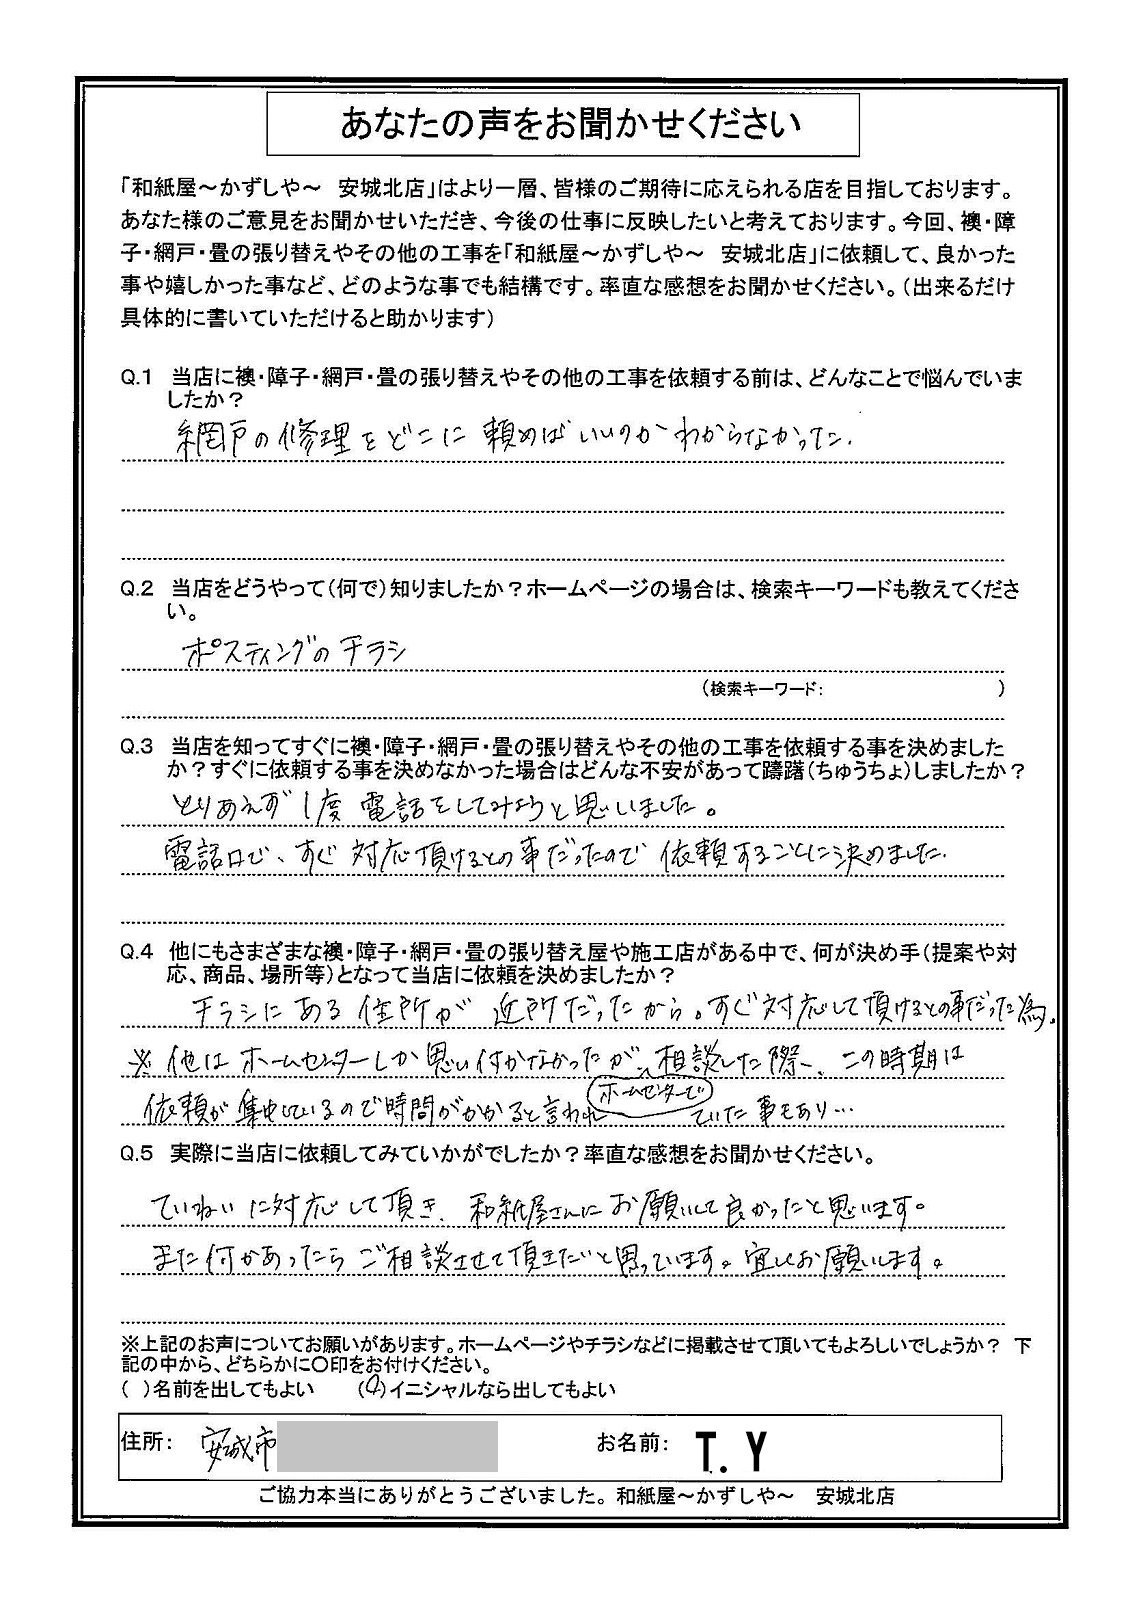 あなたの声をお聞かせください
「和紙屋～かずしや～　安城北店」はより一層、皆様のご期待に応えられる店を目指しております。
あなた様のご意見をお聞かせいただき、今後の仕事に反映したいと考えております。今回、襖・障
子・網戸・畳の張り替えやその他の工事を「和紙屋～かずしや～　安城北店」に依頼して、良かった
事や嬉しかった事など、どのような事でも結構です。率直な感想をお聞かせください。（出来るだけ
具体的に書いていただけると助かります）
Q.1　当店に襖・障子・網戸・畳の張り替えやその他の工事を依頼する前は、どんなことで悩んでいま
したか？
網戸の修理をどこに頼めばいいのかわからなかった.
Q.2　当店をどうやって（何で）知りましたか？ホームページの場合は、検索キーワードも教えてくださ
い。
ポスティングのチラシ
（検索キーワード：　　　　　　　　　　）
Q.3　当店を知ってすぐに襖・障子・網戸・畳の張り替えやその他の工事を依頼する事を決めました
か？すぐに依頼する事を決めなかった場合はどんな不安があって躊躇（ちゅうちょ）しましたか？
とりあえず1度電話をしてみようと思いました。
電話口で、すぐ対応頂けるとの事だったので依頼することに決めました.
Q.4　他にもさまざまな襖・障子・網戸・畳の張り替え屋や施工店がある中で、何が決め手（提案や対
応、商品、場所等）となって当店に依頼を決めましたか？
チラシにある住所が近所だったから。すぐ対応して頂けるとの事だった為。
※他はホームセンターしか思い付かなかったが、相談した際、この時期は
ホームセンターで
依頼が集中しているので時間がかかると言われていた事もあり…
Q.5　実際に当店に依頼してみていかがでしたか？率直な感想をお聞かせください。
ていねいに対応して頂き、和紙屋さんにお願いして良かったと思います。
また何かあったらご相談させて頂きたいと思っています。宜しくお願いします。
※上記のお声についてお願いがあります。ホームページやチラシなどに掲載させて頂いてもよろしいでしょうか？　下
記の中から、どちらかに〇印をお付けください。
（　）名前を出してもよい　　（〇）イニシャルなら出してもよい
住所：　安城市　　お名前：　T.Y
ご協力本当にありがとうございました。和紙屋～かずしや～　安城北店